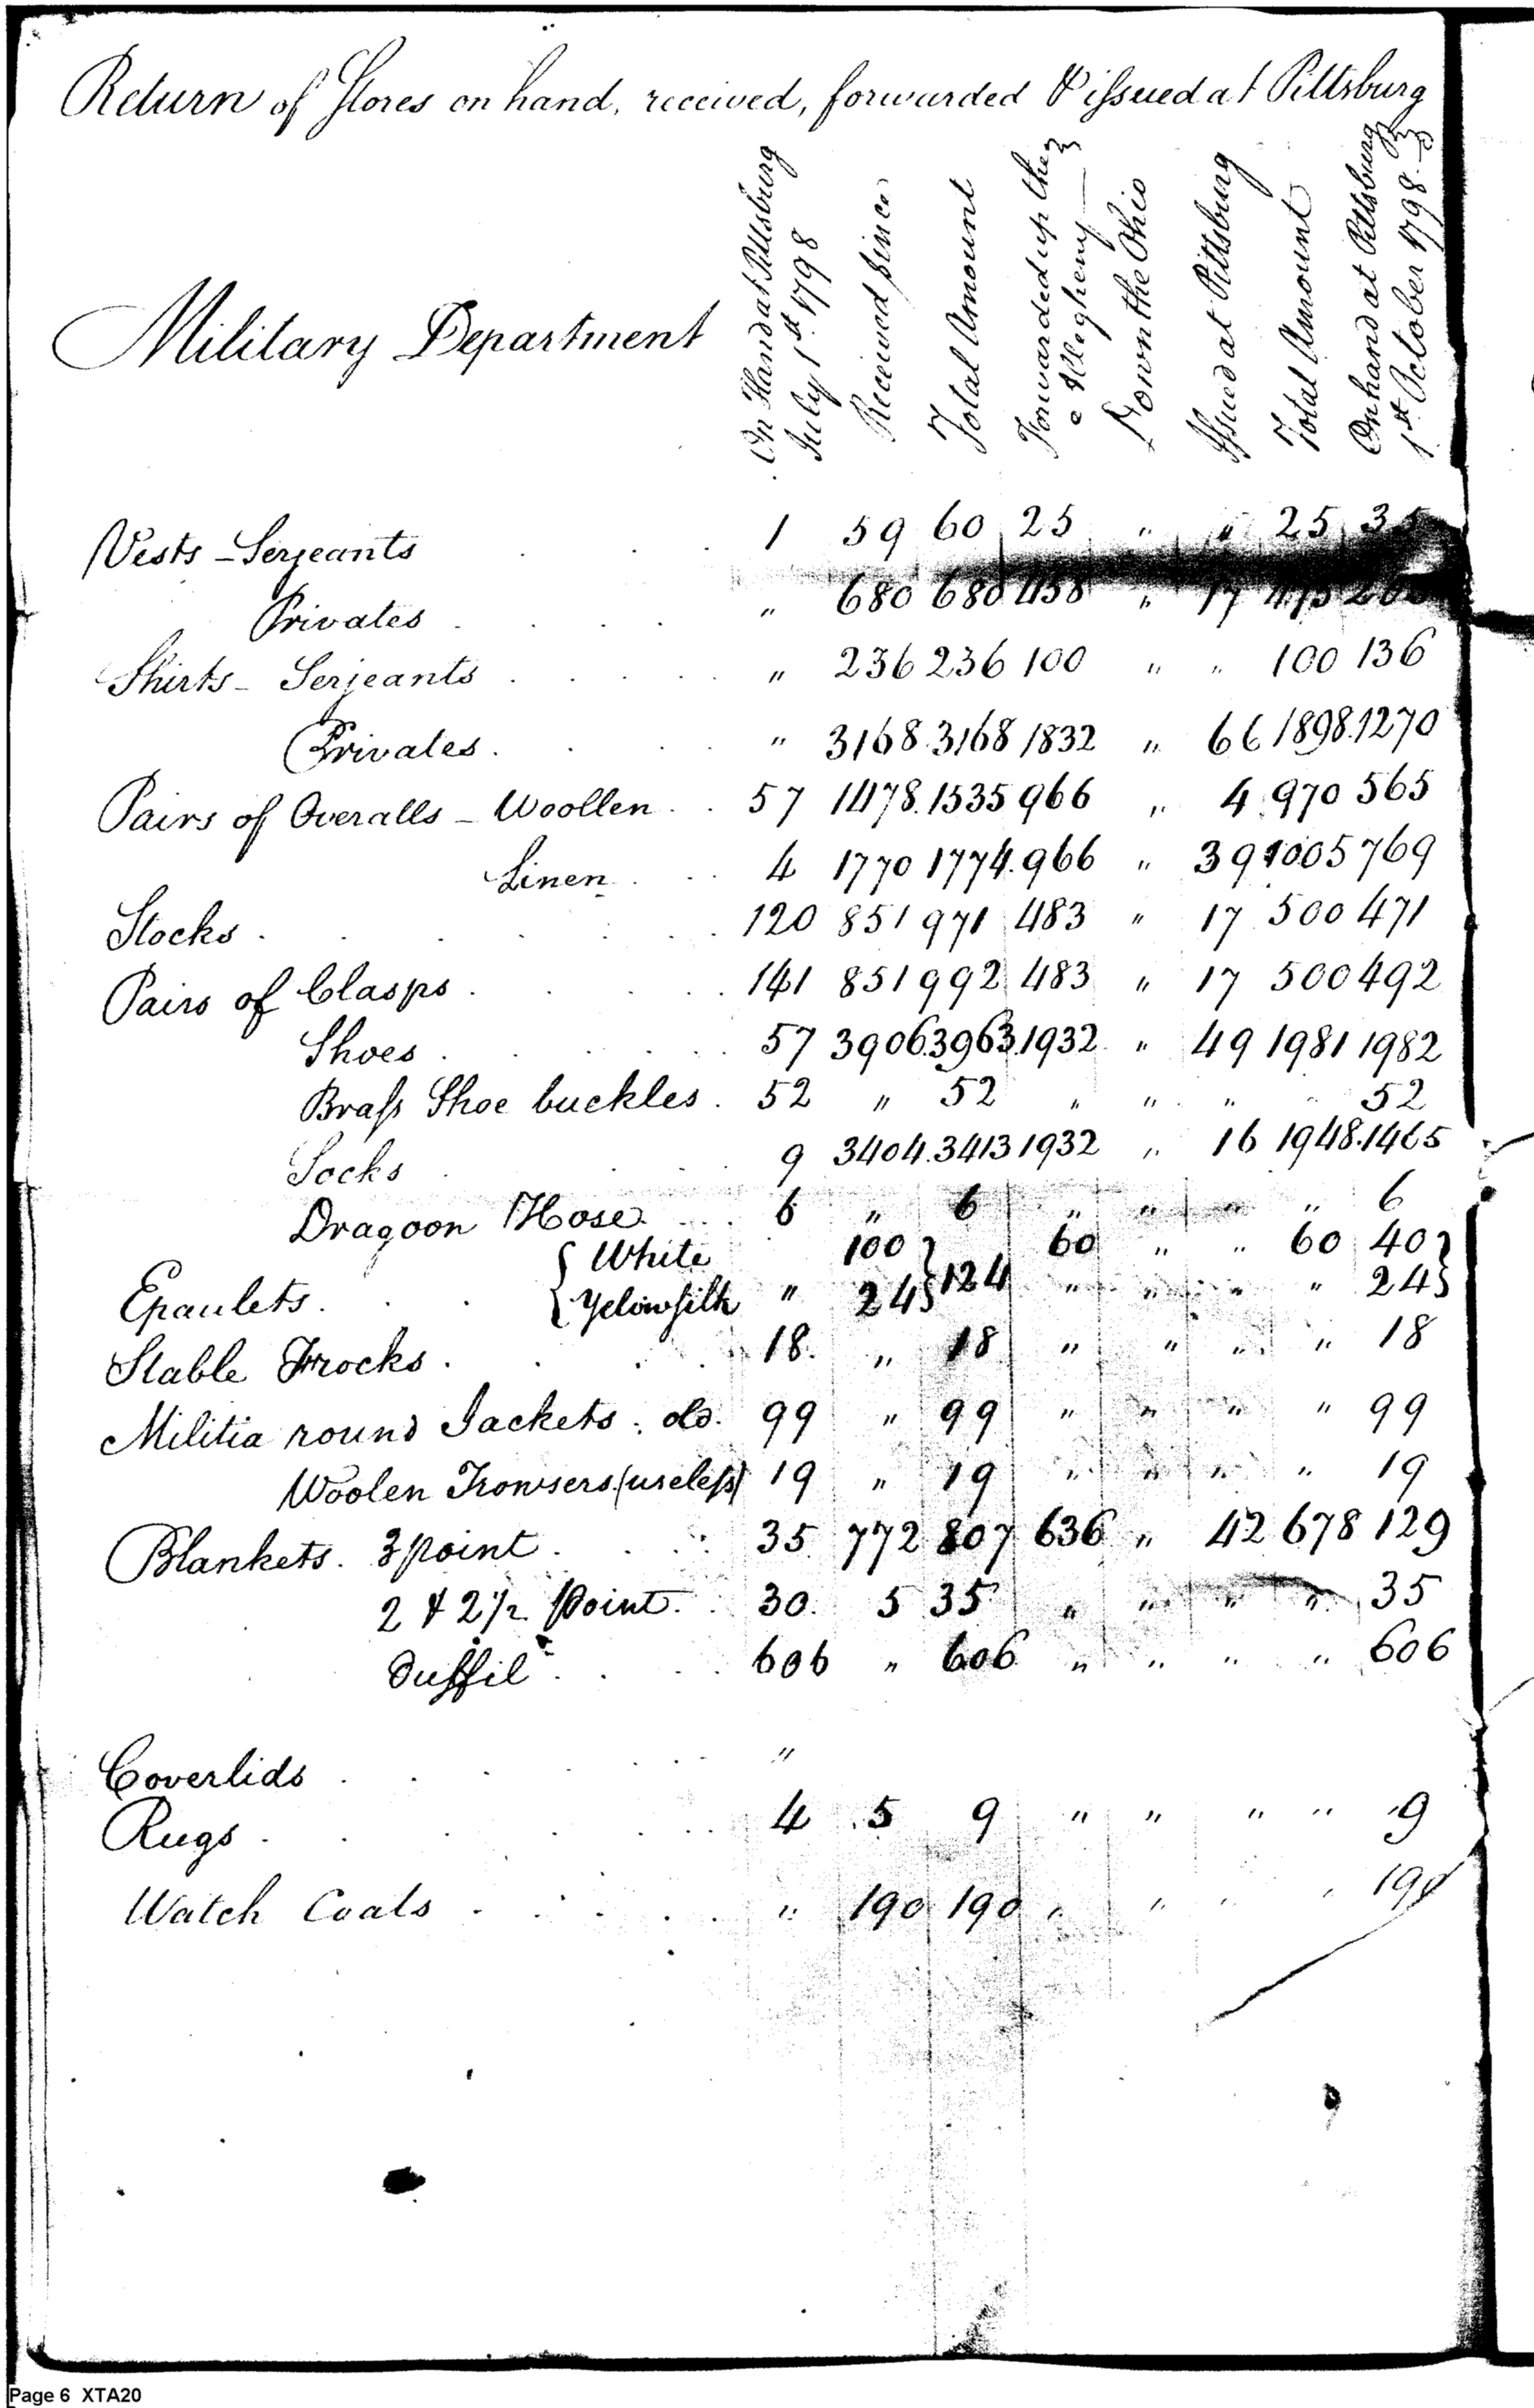 Return of Stores on hand, received, forwarded & issued at Pittsburg
Military Department
On Hand at Pittsburg July 1st. 1798
Received since
Total Amount
Forwarded up the Allegheny
Down the Ohio
Issued at Pittsburg
Total Amount
On hand at Pittsburg 1st October 1798
Vests - Serjeants . . . 1 59 60 25 " " 25 35
Privates . . . . " 680 680 458 " 17 475
Shirts - Serjeants . . . . . " 236 236 100 " " 100 136
Privates . . . . " 3168 3168 1832 " 66 1898 1270
Pairs of Overalls - Woollen . . 57 1478 1535 966 " 4 970 565
Linen . . . 4 1770 1774 966 " 39 1005 769
Stocks . . . . . . 120 851 971 483 " 17 500 471
Pairs of Clasps . . . . . 141 851 992 483 " 17 500 492
Shoes . . . . . . 57 3906 3963 1932 " 49 1981 1982
Brass Shoe buckles . 52 " 52 " " " " 52
Socks . . . . . 9 3404 3413 1932 " 16 1948 1465
Dragoon Hose . . . 6 " 6 " " " " 6
{ White 100 } 60 " " 60 40 }
Epaulets . . . { Yelow silk " 24 } 124 " " " " 24 }
Stable Frocks . . . . . 18 " 18 " " " " 18
Militia round Jackets. old. 99 " 99 " " " " 99
Woolen Trowsers (useless) 19 " 19 " " " " 19
Blankets. 3 point . . . . 35 772 807 636 " 42 678 129
2 & 2 1/2 Point . . 30 5 35 " " " " 35
duffil . . . . 606 " 606 " " " " 606
Coverlids . . . . . . "
Rugs . . . . . . . 4 5 9 " " " " 9
Watch Coats . . . . . " 190 190 " " " " 190
Page 6 XTA20